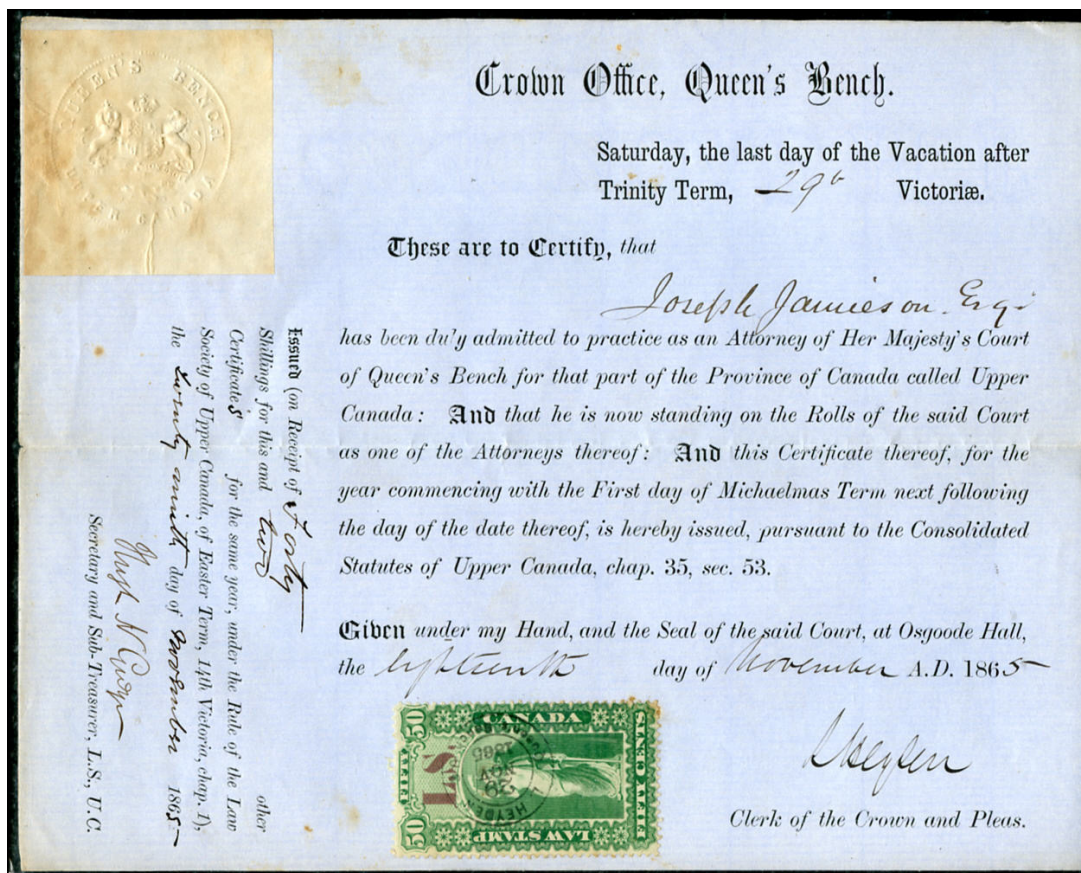 QUEEN'S BENCH
UPPER CANADA
Crown Office, Queen's Bench.
Saturday, the last day of the Vacation after
Trinity Term, 29th Victoriæ.
These are to Certify, that
Joseph Jamieson Esq.
has been duly admitted to practice as an Attorney of Her Majesty's Court
of Queen's Bench for that part of the Province of Canada called Upper
Canada: And that he is now standing on the Rolls of the said Court
as one of the Attorneys thereof: And this Certificate thereof, for the
year commencing with the First day of Michaelmas Term next following
the day of the date thereof, is hereby issued, pursuant to the Consolidated
Statutes of Upper Canada, chap. 35, sec. 53.
Given under my Hand, and the Seal of the said Court, at Osgoode Hall,
the Eighteenth day of November A.D. 1865
L Heyden
Clerk of the Crown and Pleas.
Issued (on Receipt of Forty
Shillings for this and two other
Certificates for the same year, under the Rule of the Law
Society of Upper Canada, of Easter Term, 14th Victoria, chap. 1),
the twenty ninth day of November 1865
Hugh N Gwyn
Secretary and Sub-Treasurer, L.S., U.C.
50 CANADA 50
L.S
LAW STAMP
HEYDEN
29
NOV
1865